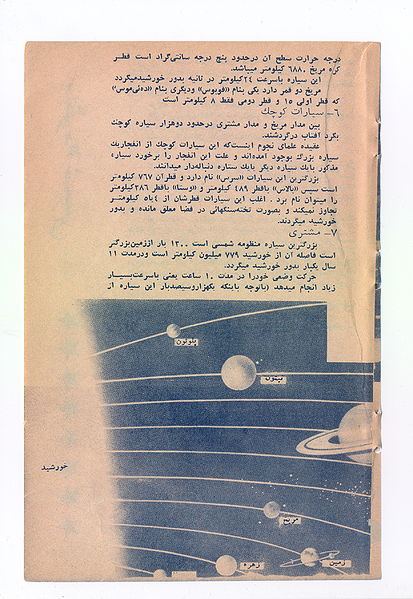 درجه حرارت سطح آن درحدود پنج درجه سانتی‌گراد است قطر
کره مریخ ۶۸۸۰ کیلومتر میباشد.
این سیاره باسرعت ۲۴کیلومتر در ثانیه بدور خورشیدمیگردد
مریخ دو قمر دارد یکی بنام «فوبوس» ودیگری بنام «ده‌ئی‌موس»
که قطر اولی ۱۵ و قطر دومی فقط ۸ کیلومتر است
۶- سیارات کوچک
بین مدار مریخ و مدار مشتری درحدود دوهزار سیاره کوچک
بگرد آفتاب درگردشند.
عقیده علمای نجوم اینستکه این سیارات کوچک از انفجاریک
سیاره بزرگ بوجود آمده‌اند و علت این انفجار را برخورد سیاره
مذکور بایک سیاره دیگر یایک ستاره دنباله‌دار میدانند.
بزرگترین این سیارات «سرس» نام دارد و قطرآن ۷۶۷ کیلومتر
است سپس «پالاس» باقطر ۴۸۹ کیلومتر و «وستا» باقطر ۳۸۶کیلومتر
را میتوان نام برد . اغلب این سیارات قطرشان از ۴یاه کیلومتر
تجاوز نمیکند و بصورت تخته‌سنگهائی در فضا معلق مانده و بدور
خورشید میگردند.
۷- مشتری
بزرگترین سیاره منظومه شمسی است ۱۳۰۰ بار اززمین‌بزرگتر
است فاصله آن از خورشید ۷۷۹ میلیون کیلومتر است ودرمدت ۱۱
سال یکبار بدور خورشید میگردد.
حرکت وضعی خودرا در مدت ۱۰ ساعت یعنی باسرعت‌بسیار
زیاد انجام میدهد (باتوجه باینکه یکهزاروسیصدبار این سیاره از
پلوتون
نپتون
خورشید
مریخ
زمین
زهره